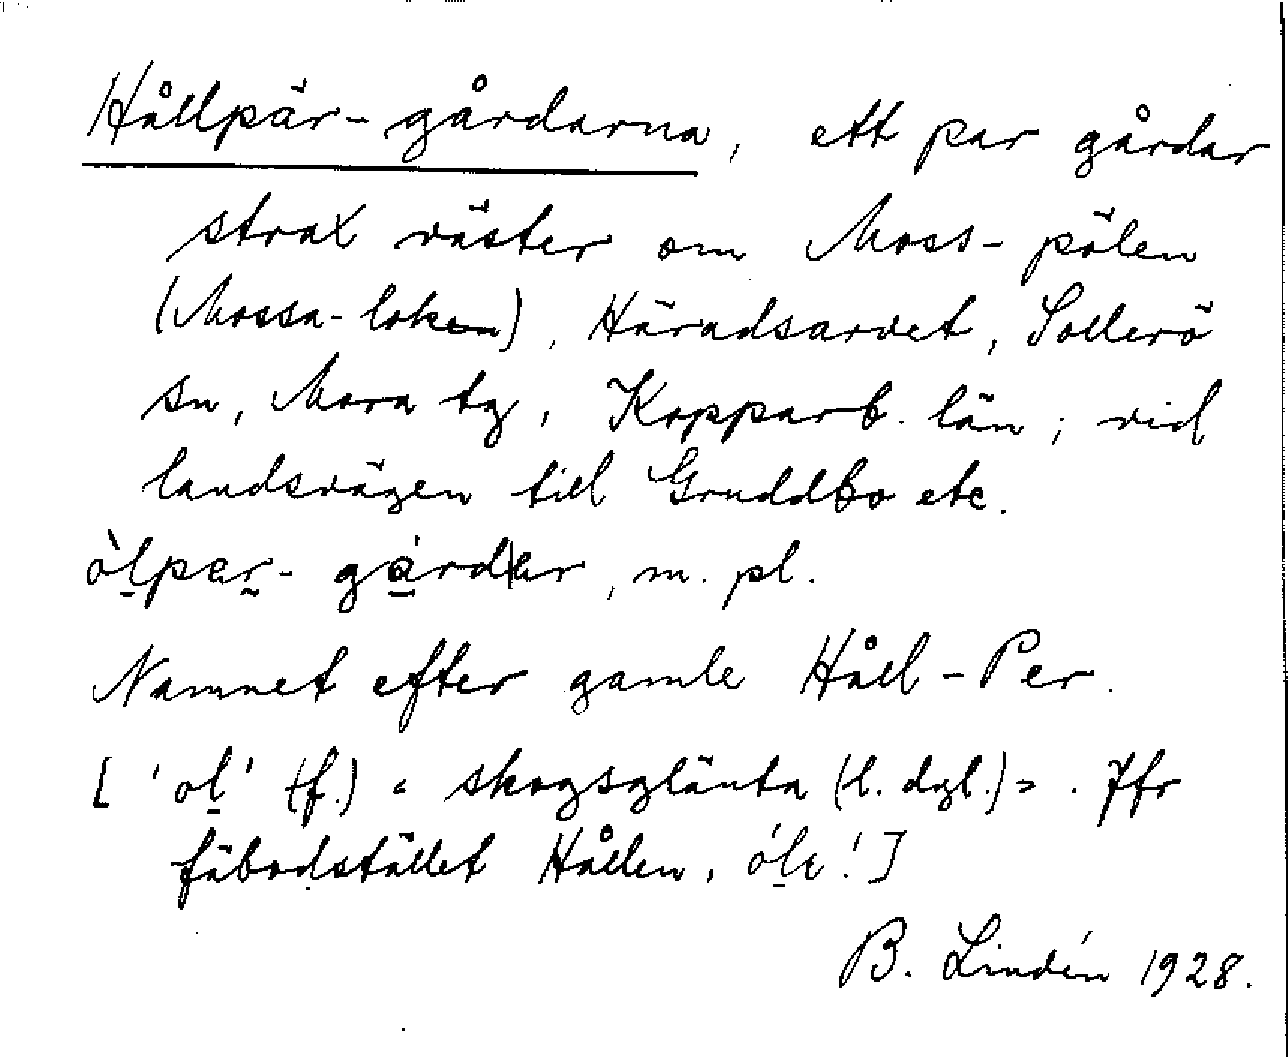 Hållpär-gårdarna, ett par gårdar
strax väster om Moss-pölen
(Mossa-loken), Häradsarvet, Sollerö
sn, Mora tg, Kopparb. län; vid
landsvägen till Gruddbo etc.
òl̠per̰- gárdar, m. pl.
Namnet efter gamle Håll-Per.
['ol̠' (f.) = skogsglänta (l. dyl.) = . Jfr
fäbodstället Hållen, ól̠e!]
B. Lindén 1928.